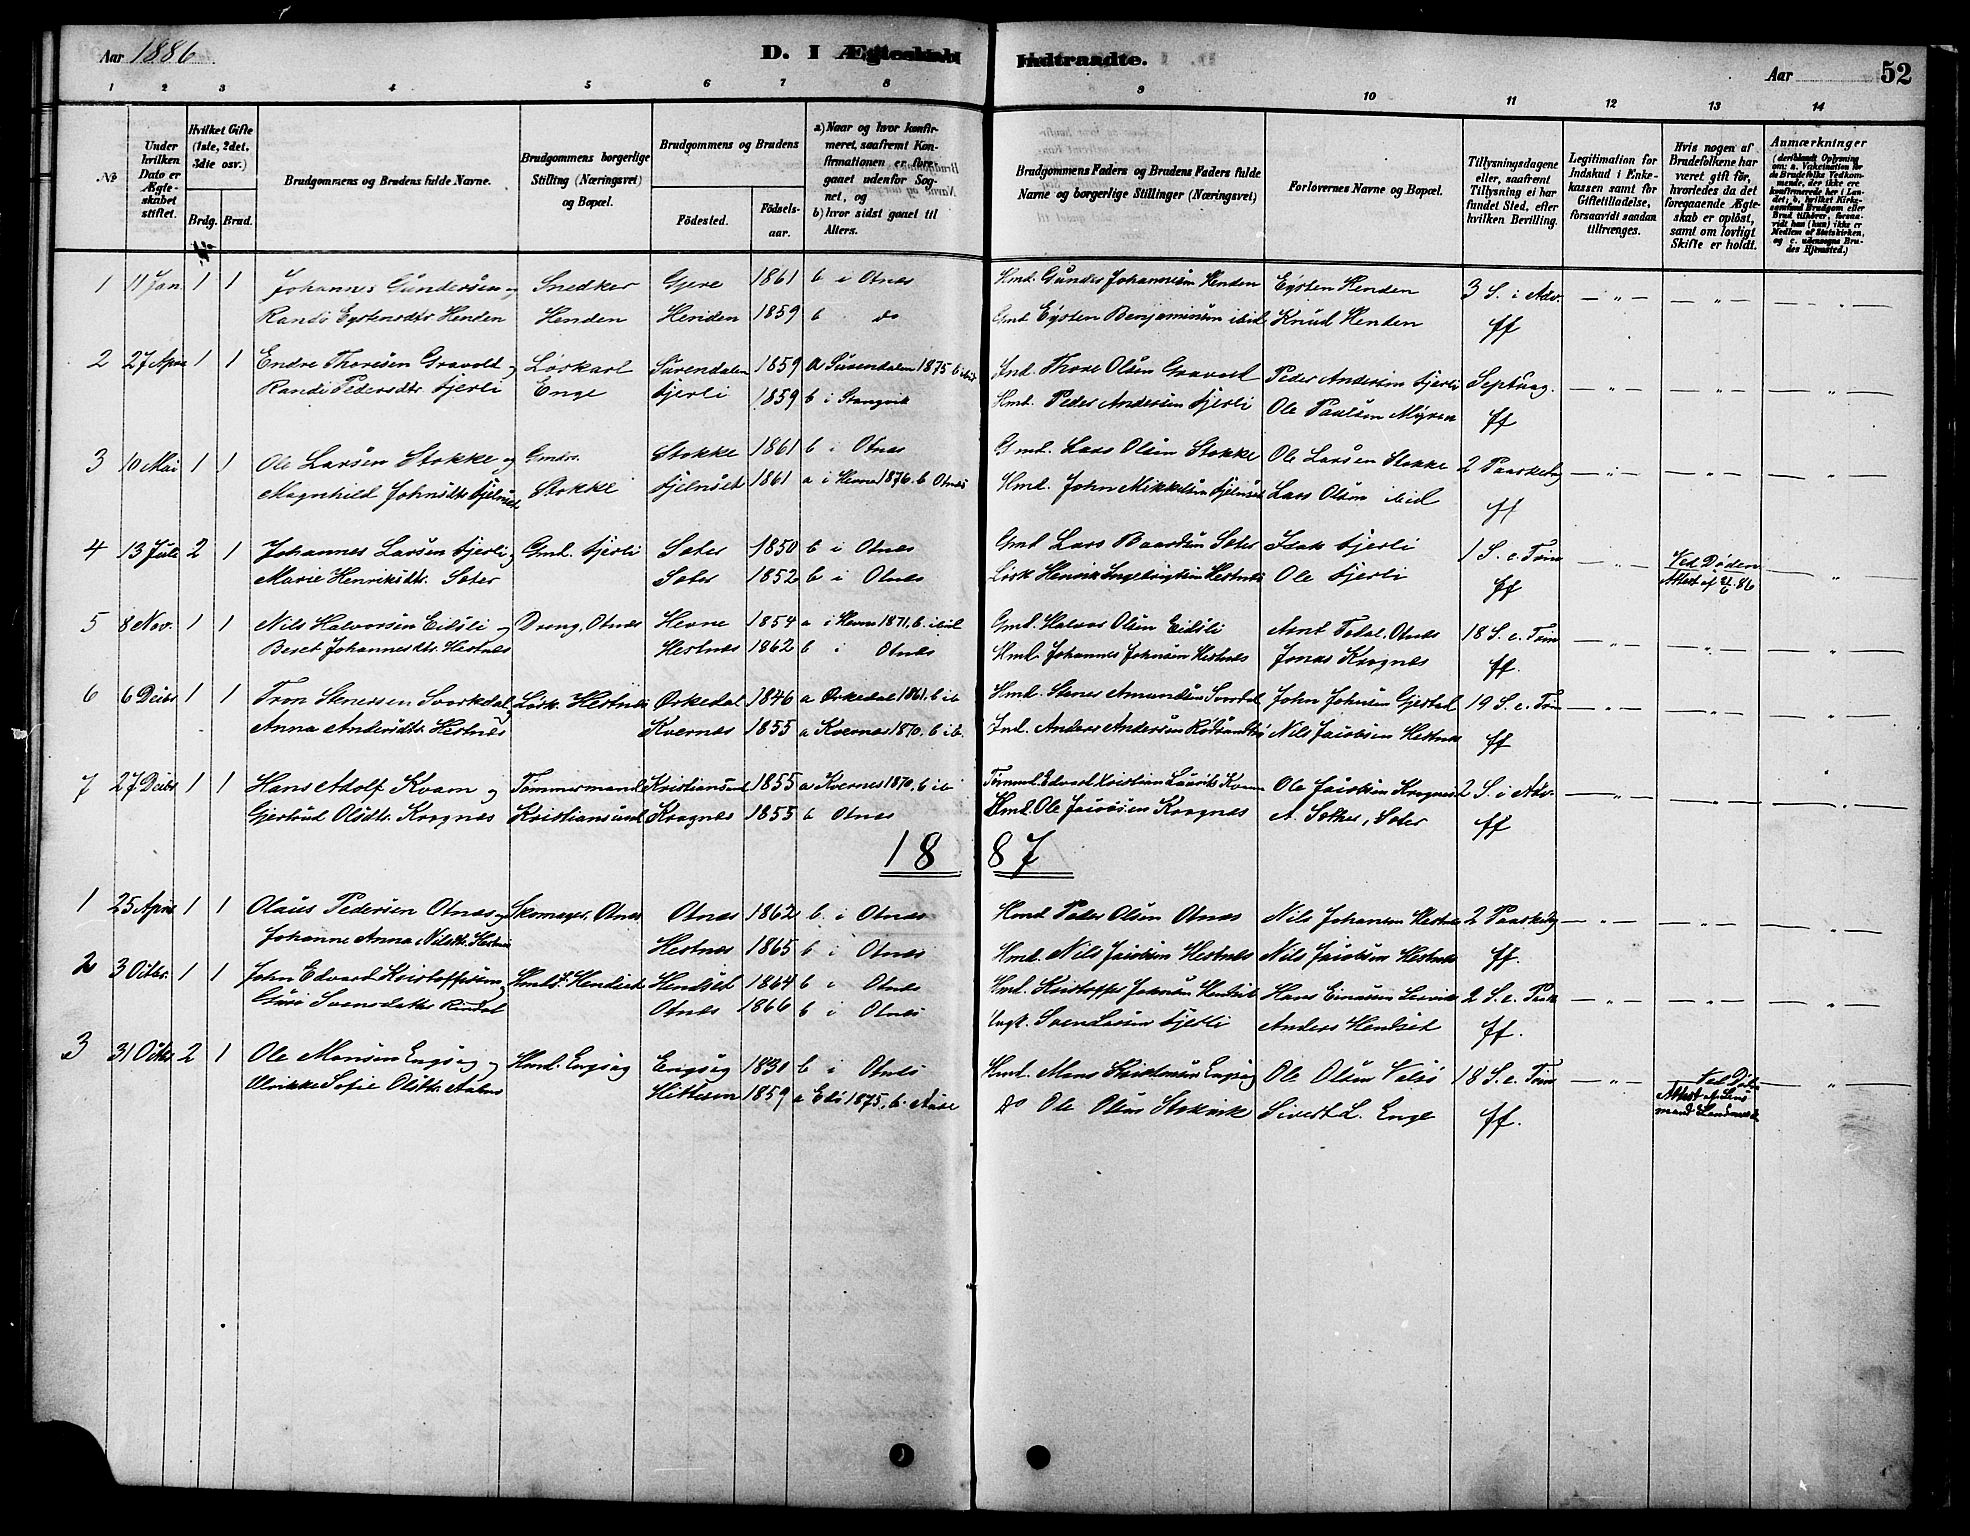 Aar 1886
D. I Ægteskab Indtraadte.
Aar 52
1 2 3 4 5 6 7 8 9 10 11 12 13 14
№
Under hvilken Dato er Ægteskabet stiftet.
Hvilket Gifte (1ste, 2det, 3die osv.)
Brdg. Brud.
Brudgommens og Brudens fulde Navne.
Brudgommens borgerlige Stilling (Næringsvei) og Bopæl.
Brudgommens og Brudens
Fødested.
Fødselsaar.
a) Naar og hvor konfirmeret, saafremt Konfirmationen er foregaaet udenfor Sognet, og
b) hvor sidst gaaet til Alters.
Brudgommens Faders og Brudens Faders fulde Navne og borgerlige Stillinger (Næringsvei)
Forlovernes Navne og Bopæl.
Tillysningsdagene eller, saafremt Tillysning ei har fundet Sted, efter hvilken Bevilling.
Legitimation for Indskud i Enkekassen samt for Giftetilladelse, forsaavidt saadan tiltrænges.
Hvis nogen af Brudefolkene har været gift før, hvorledes da det foregaaende Ægteskab er opløst, samt om lovligt Skifte er holdt.
Anmærkninger
1 11 Jan. 1 1 Johannes Gundersen og Snedker Gjere 1861 b i Otnes Hmd. Gunder Johannesen Henden Eysten Henden 3 S. i Adv.
Randi Eystensdtr Henden Henden Henden 1859 b do Gmd Eysten Benjaminsen ibid Knud Henden ff
2 27 Apri 1 1 Endre Thoresen Gravold og Löskarl Surendalen 1859 a Surendalen 1875 b ibid Ind. Thore Olsen Gravold Peder Andersen Fjerli Septuag.
Randi Pedersdtr. Fjerli Enge Fjerli 1859 b i Stangvik Hmd. Peder Andersen Fjerli Ole Paulsen Myren ff
3 10 Mai 1 1 Ole Larsen Stokke og Gmdss. Stokke 1861 b i Otnes Gmd. Lars Olsen Stokke Ole Larsen Stokke 2 Paaskedg
Magnhild Johnsdtr Fjelnset Stokke Fjelnset 1861 a i Hevne 1876. b Otnes Hmd. John Mikkelsen Fjelnset Lars Olsen ibid ff
4 13 Juli 2 1 Johannes Larsen Fjerli og Gmd. Fjerli Sæter 1850 b i Otnes Gmd Lars Baardsen Sæter Isak Fjerli 1 S. e. Trin Ved Døden
Marie Henriksdtr. Sæter Sæter 1852 b i Otnes Lösk Henrik Ingebrigtsen Hestnes Ole Fjerli ff Attest af 86
5 8 Nov. 1 1 Nils Halvorsen Eidsli og Dreng, Otnes Hevne 1854 a i Hevne 1871. b. ibid Gmd. Halvor Olsen Eidsli Arnt Todal, Otnes 18 S. e. Trin
Beret Johannesdtr. Hestnes Hestnes 1862 b i Otnes Hmd. Johannes Johnsen Hestnes Jonas Krognes ff.
6 6 Decbr 1 1 Tron Stenersen Svorkdal og Lösk. Hestnes Orkedal 1846 a Orkedal 1861. b ib Hmd. Stener Amundsen Svorkdal John Johnsen 19 S. e. Trin
Anna Andersdtr. Hestnes Kvernes 1855 a Kvernes 1870. b ib. Ind. Anders Andersen Nils Jacobsen Hestnes ff
7 27 Decbr 1 1 Hans Adolf Kvam og Tömmermand Kristiansund 1855 a Kvernes 1870. b ib Tömmd. Edvard Kristian Lauritz Kvam Ole Jacobsen Krognes 2 S. i Adv.
Gjertrud Olsdtr. Krognes Kristiansund Krognes 1855 b Otnes Hmd. Ole Jacobsen Krognes A. Sæther, Sæter ff
1887
1 25 Apri 1 1 Olaus Pedersen Otnes og Skomager, Otnes Otnes 1862 b. i Otnes Hmd Peder Olsen Otnes Nils Johansen Hestnes 2 Paaskedg
Johanne Anna Nilsdtr. Hestnes Hestnes 1865 b i Otnes Hmd. Nils Jacobsen Hestnes Nils Jacobsen Hestnes ff.
2 3 Octbr. 1 1 John Edvard Kristoffersen og Hendset Hendset 1864 b i Otnes Hmd. Kristoffer Johnsen Hendset Hans Einarsen 2 S. e.
Guri Svensdatter Rindal Otnes 1866 b i Otnes Sven Larsen Fjerli Anders Hendset ff.
3 31 Octbr 2 1 Ole Monsen Engsøg og Hmd. Engsøg Engsøg 1830 b i Otnes Hmd. Mons Engsøg Ole Olsen Valsö 18 S. e. Trin Ved Døden
Sofie Olsdtr. Hitteren 1859 a Edö 1875, b. Aure do Ole Olsen Sivert L. Enge ff. Attest af Lensmand